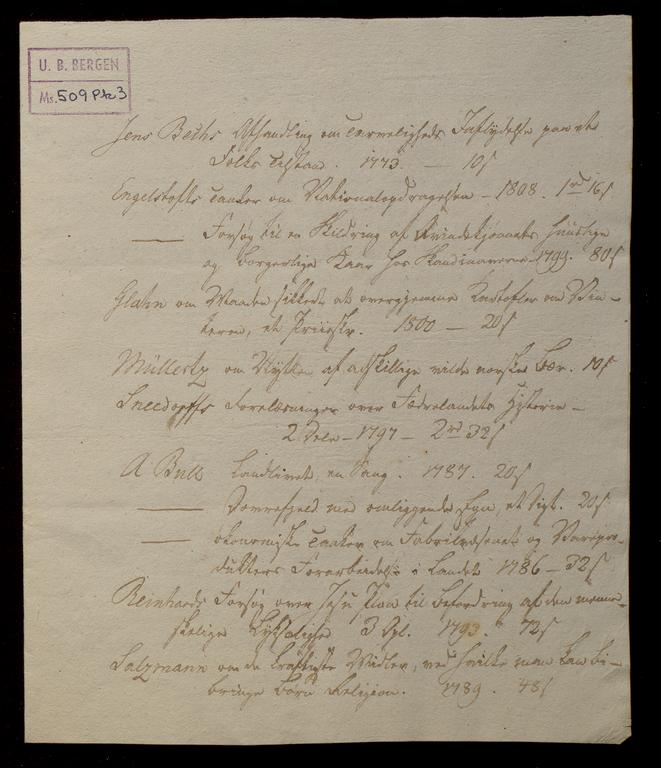 U. B. BERGEN
Ms. 509 Pk 3
Jens Beths Afhandling om Tarveligheds Indflydelse paa ets
Folks Tilstand. 1773. — 10 ſ
Engelstofts Tanker om Nationalopdragelsen – 1808. 1 rd 16 ſ
— Forsøg til en Skildring af Kvindekjønnets huuslige
og borgerlige Kaar hos Skandinaverne 1799. 80 ſ
Glahn om Maaden sikkert at overgjemme Kartofler om Vin-
teren, et Priisskr. 1800 — 20 ſ
Müllertz om Nytten af adskillige vilde norske Bær. 10 ſ
Sneedorffs Forelæsninger over Fædrelandets Historie –
2 Dele – 1797 – 2 rd 32 ſ
A Bull Landlivet, en Sang. 1787. 20 ſ
— Dovrefjeld med omliggende Egn, et Digt. 20 ſ
— økonomiske Tanker om Fabrikvæsenet og Varepro-
dukters Forarbeidelse i Landet 1786 – 32 ſ
Reinhards Forsøg over Jesu Plan til Befordring af den menne-
skelige Lyksalighed 3 Opl. 1793. 72 ſ
Salzmann om de kraftigste Midler, ved hvilke man kan bi-
bringe Børn Religion. 1789. 48 ſ